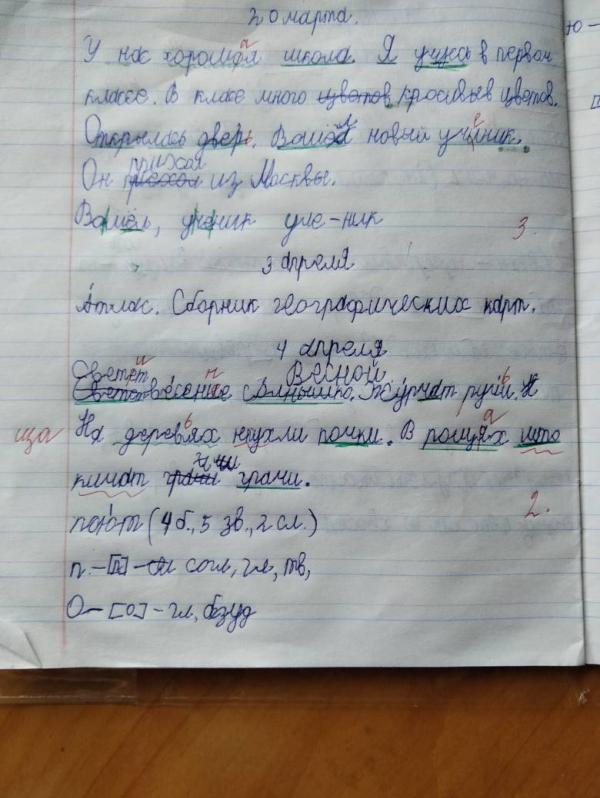 20 марта.
У нас хорошая школа. Я учусь в первом
классе. В класе много цветов красивых цветов.
Открылась дверь. Вошол новый ученик.
приехал
Он приехал из Москвы.
Вошёл, ученик уче-ник
3.
3 апреля
Атлас. Сборник географических карт.
4 апреля
Весной.
Светет весение солнышко. Журчат ручи. Н
ща На деревях нбухли почки. В рощях што
кичат грачи грачи.
2.
поют (4 б., 5 зв., 2 сл.)
п - [п] - согл, гл, тв,
О - [о] - гл, безуд